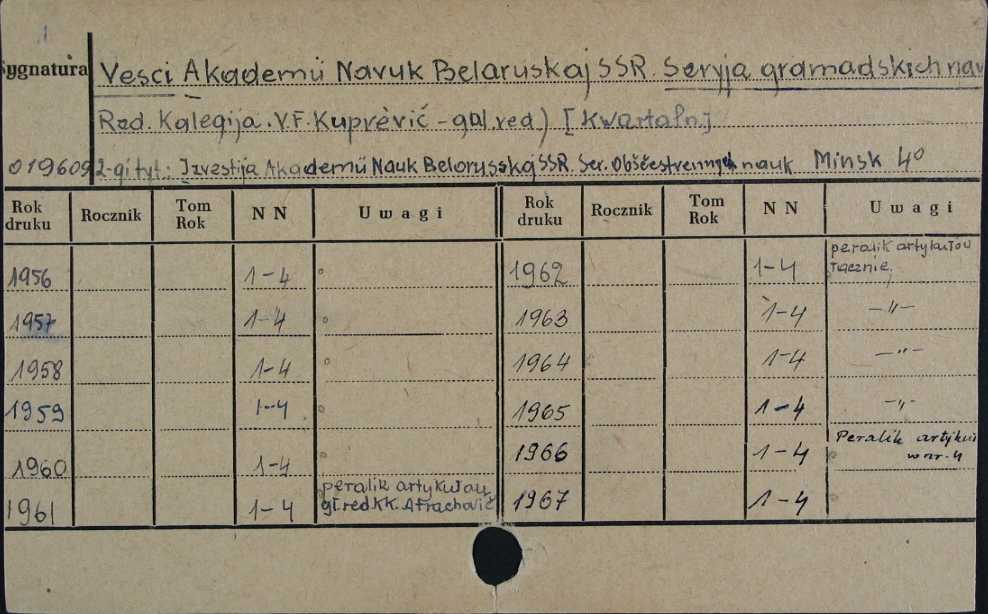 1
Sygnatura Vesci Akademii Navuk Belaruskaj SSR. Seryja gramadskich nav
Red. Kalegija. V.F. Kuprèvič - gal. red) [Kwartaln.]
019609 2-gi tyt.: Izvestija Akademii Nauk Belorusskoj SSR. Ser. Obščestvennych nauk Minsk 4°
Rok druku Rocznik Tom Rok NN Uwagi Rok druku Rocznik Tom Rok NN Uwagi
1956 1-4 1962 1-4 peralik artykułou łacznie.
1957 1-4 1963 1-4 -"-
1958 1-4 1964 1-4 -"-
1959 1-4 1965 1-4 -"-
1960 1-4 1966 1-4 Peralik artykuł w nr. 4
1961 1-4 peralik artykułau gł. red. K.K. Atrachovič 1967 1-4